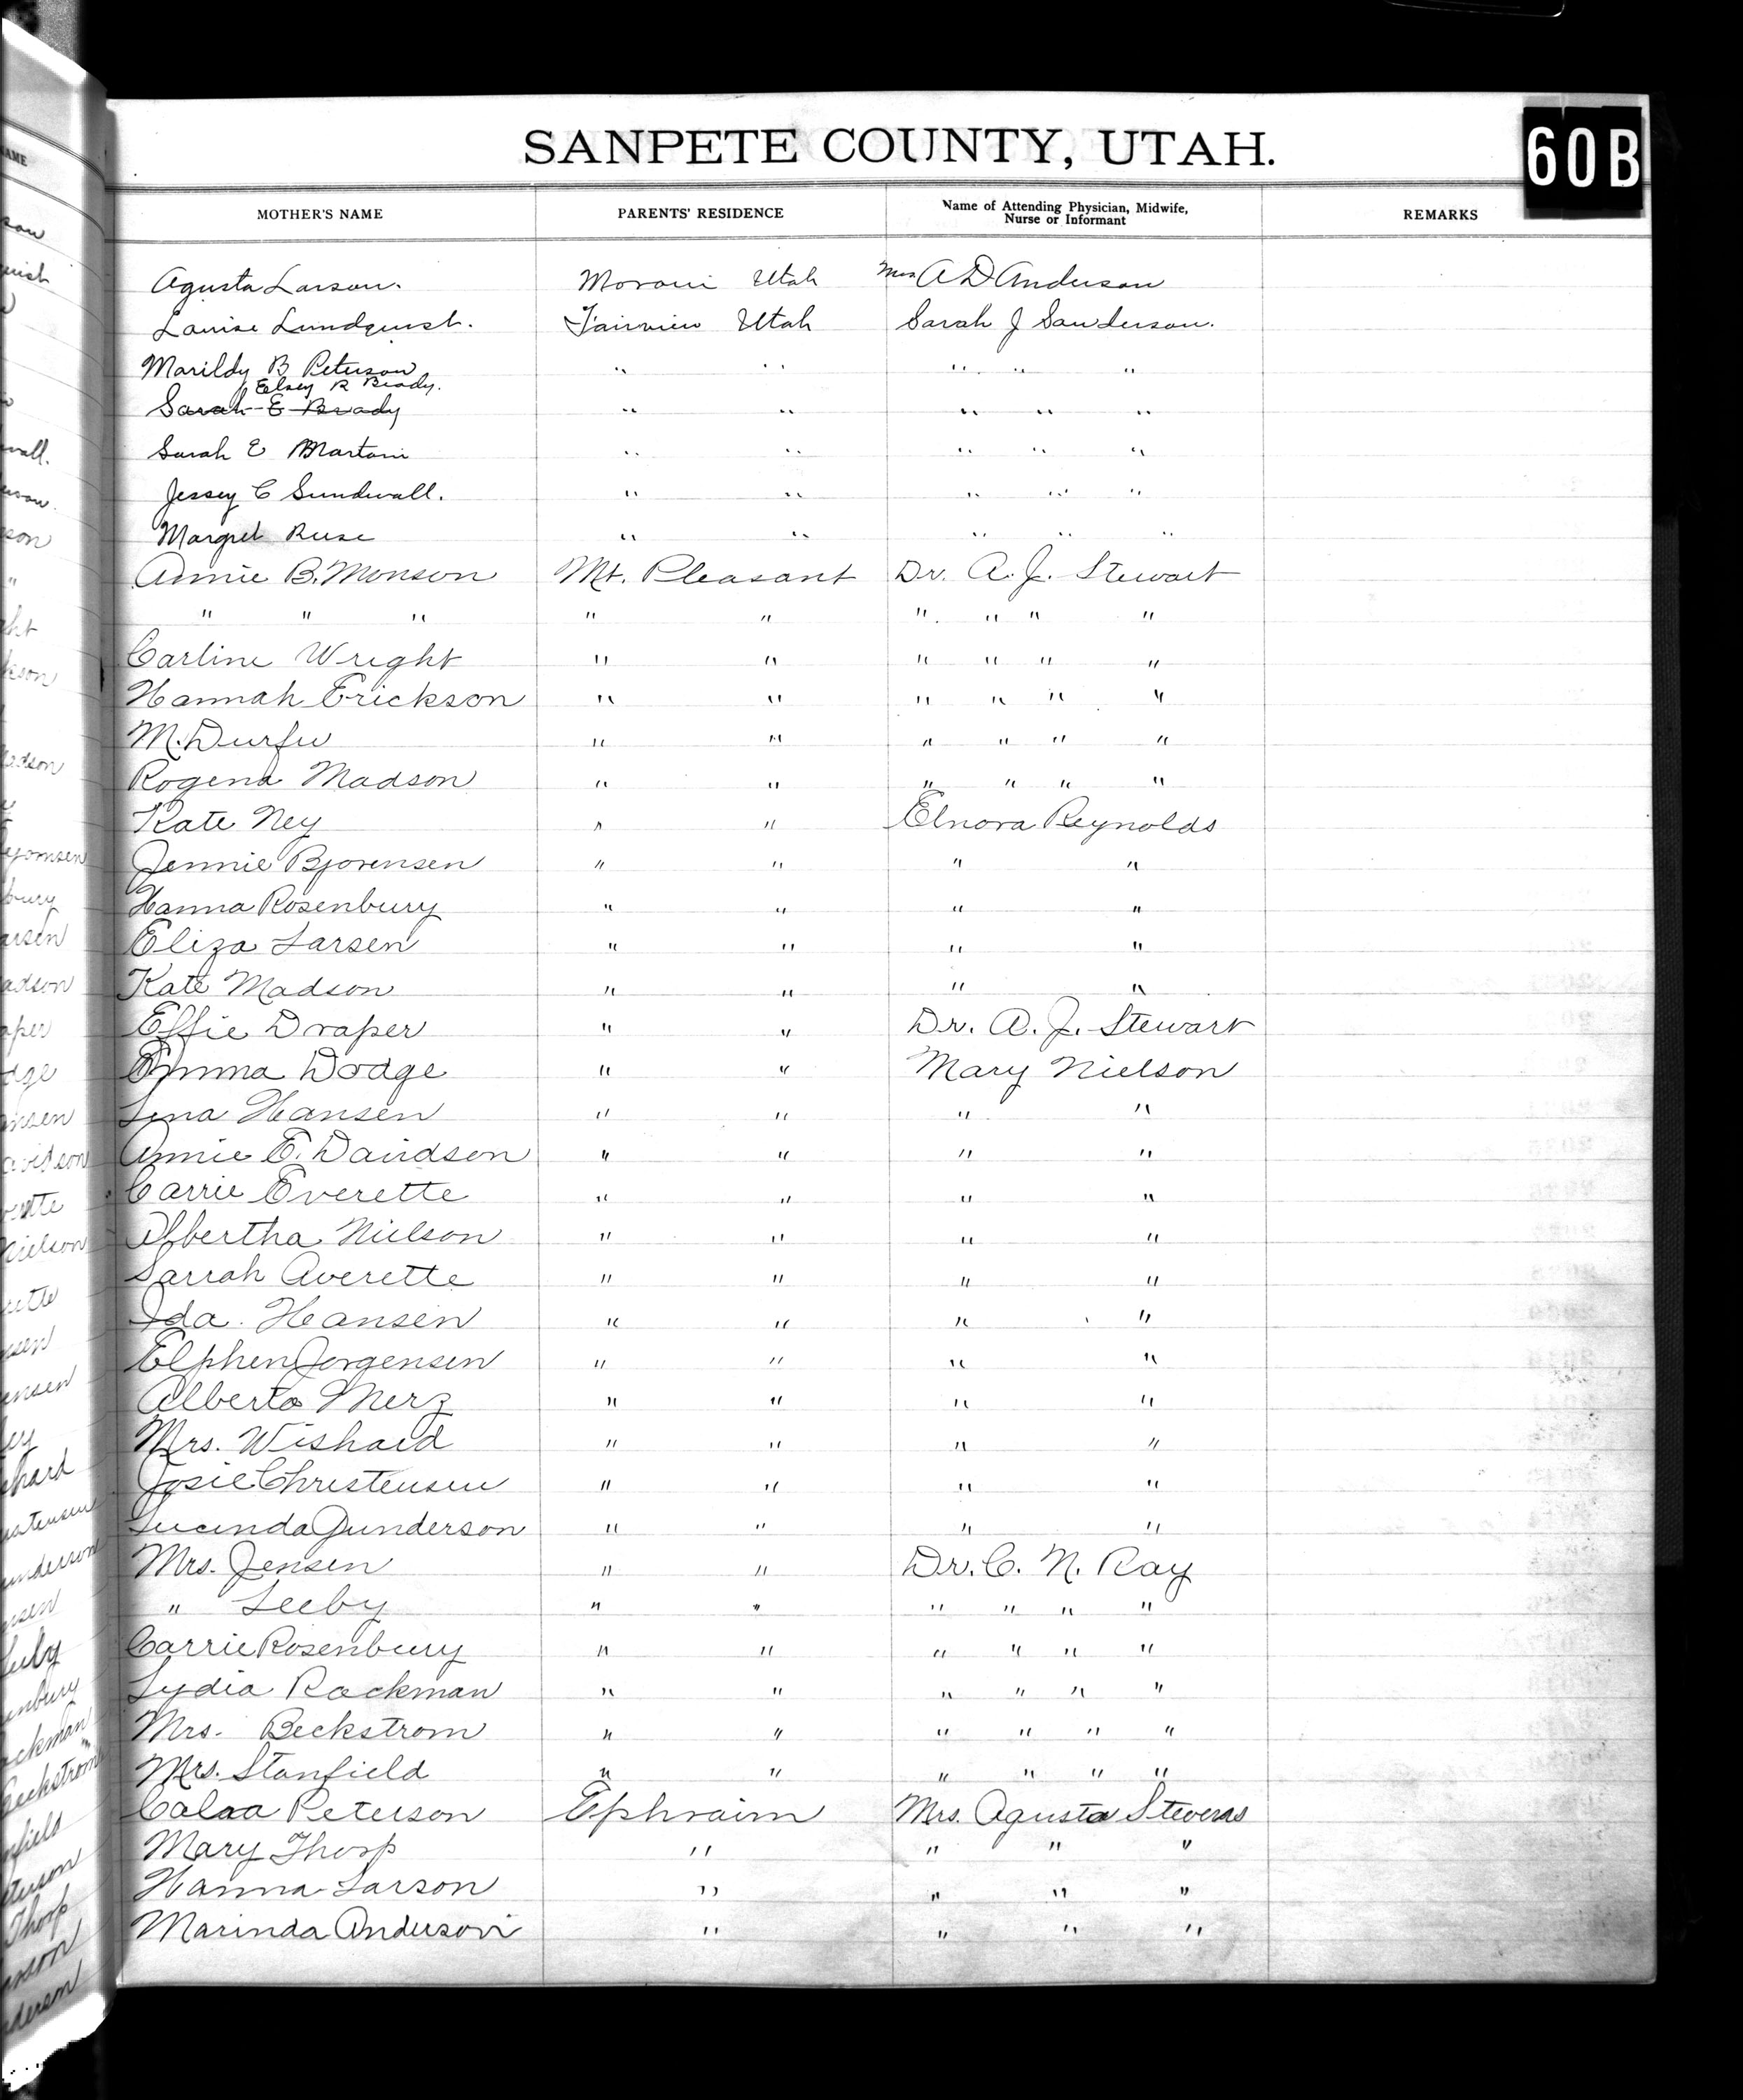 SANPETE COUNTY, UTAH.
60B
MOTHER'S NAME PARENTS' RESIDENCE Name of Attending Physician, Midwife, Nurse or Informant REMARKS
Agusta Larson. Moroni Utah Mrs A D Anderson
Louise Lundquist. Fairview Utah Sarah J Sanderson.
Marildy B Peterson " " " " "
Elsey R Brady.
Sarah E Brady " " " " "
Sarah E " " " " "
Jessey C Sundwall. " " " " "
Margret Ruse " " " " "
Annie B. Monson Mt. Pleasant Dr. A. J. Stewart
" " " " " " " " "
Carline Wright " " " " " "
Hannah Erickson " " " " " "
M. Durfee " " " " " "
Rogena Madson " " " " " "
Kate Ney " " Elnora Reynolds
Jennie Bjorensen " " " "
Hanna Rosenbury " " " "
Eliza Larsen " " " "
Kate Madson " " " "
Effie Draper " " Dr. A. J. Stewart
Emma Dodge " " Mary Nielson
Lena Hansen " " " "
Annie E. Davidson " " " "
Carrie Everette " " " "
Albertha Nielson " " " "
Sarrah Averette " " " "
Ida Hansen " " " "
Elphen Jorgensen " " " "
Alberta Merz " " " "
Mrs. Wishard " " " "
Josie Christensen " " " "
Lucinda Gunderson " " " "
Mrs. Jensen " " Dr. C. N. Ray
" Seeby " " " " " "
Carrie Rosenbury " " " " " "
Lydia Rockman " " " " " "
Mrs. Beckstrom " " " " " "
Mrs. Stanfield " " " " " "
Peterson Ephraim Mrs. Agusta Stevens
Mary Thorp " " " "
Hanna Larson " " " "
Marinda Anderson " " " "